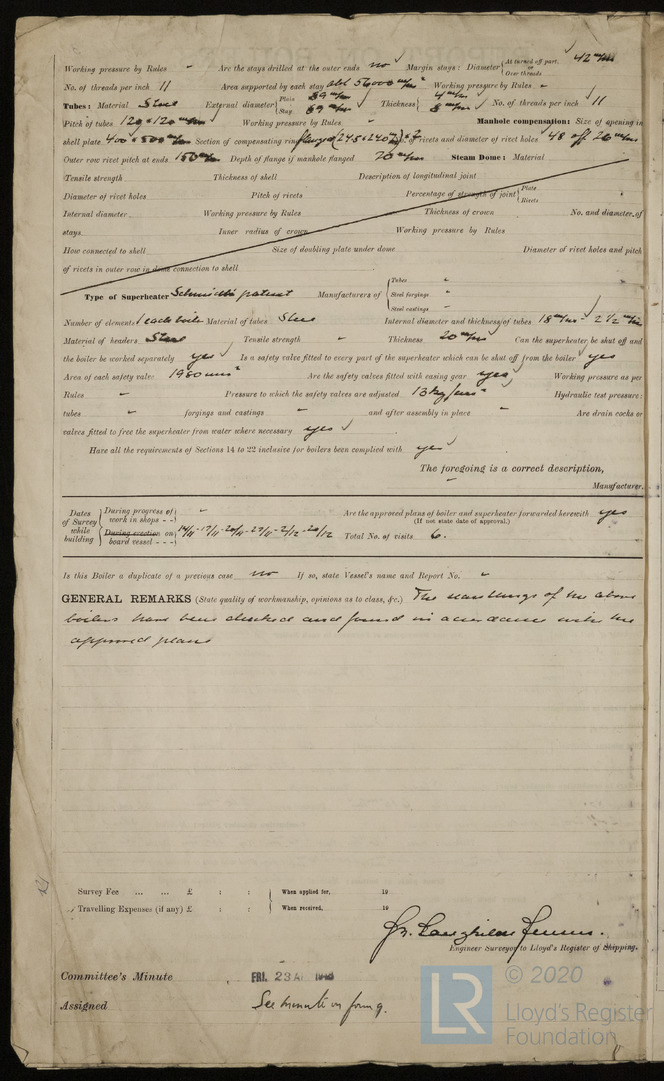 Working pressure by Rules " Are the stays drilled at the outer ends no Margin stays: Diameter { At turned off part, 42 m/m
or
Over threads
No. of threads per inch 11 Area supported by each stay abt 56000 m/m² Working pressure by Rules "
Tubes: Material Steel External diameter { Plain 89 m/m Stay 89 m/m Thickness { 4 m/m 8 m/m No. of threads per inch 11
Pitch of tubes 120 × 120 m/m Working pressure by Rules " Manhole compensation: Size of opening in
shell plate 400 × 500 m/m Section of compensating ring flanged No. of rivets and diameter of rivet holes 48 off 26 m/m
Outer row rivet pitch at ends 150 m/m Depth of flange if manhole flanged 70 m/m Steam Dome: Material
Tensile strength Thickness of shell Description of longitudinal joint
Diameter of rivet holes Pitch of rivets Percentage of strength of joint { Plate Rivets
Internal diameter Working pressure by Rules Thickness of crown No. and diameter of
stays Inner radius of crown Working pressure by Rules
How connected to shell Size of doubling plate under dome Diameter of rivet holes and pitch
of rivets in outer row in dome connection to shell
Type of Superheater Schmidt's patent Manufacturers of { Tubes "
Steel forgings "
Steel castings "
Number of elements 1 each boiler Material of tubes Steel Internal diameter and thickness of tubes 18 m/m - 2 1/2 m/m
Material of headers Steel Tensile strength " Thickness 20 m/m Can the superheater be shut off and
the boiler be worked separately yes Is a safety valve fitted to every part of the superheater which can be shut off from the boiler yes
Area of each safety valve 1980 m/m² Are the safety valves fitted with easing gear yes Working pressure as per
Rules " Pressure to which the safety valves are adjusted 13 kg/cm² Hydraulic test pressure:
tubes " forgings and castings " and after assembly in place " Are drain cocks or
valves fitted to free the superheater from water where necessary yes
Have all the requirements of Sections 14 to 22 inclusive for boilers been complied with yes
The foregoing is a correct description,
" Manufacturer.
Dates of Survey while building { During progress of work in shops - - } "
During erection on board vessel - - - } 14/11 - 17/11 - 20/11 - 27/11 - 2/12 - 20/12
Are the approved plans of boiler and superheater forwarded herewith yes
(If not state date of approval.)
Total No. of visits 6.
Is this Boiler a duplicate of a previous case no If so, state Vessel's name and Report No. "
GENERAL REMARKS (State quality of workmanship, opinions as to class, &c.) The scantlings of the above
boilers have been checked and found in accordance with the
approved plans
Survey Fee ... ... £ : : } When applied for, 19
Travelling Expenses (if any) £ : : } When received, 19
Engineer Surveyor to Lloyd's Register of Shipping.
Committee's Minute FRI. 23 A
Assigned See minute on form 9.
LR © 2020
Lloyd's Register
Foundation